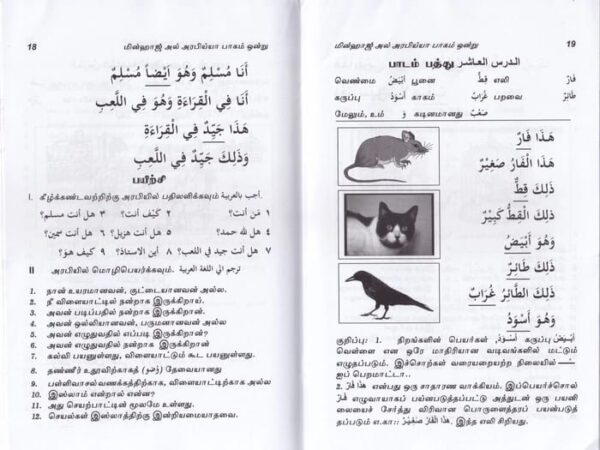 18 மின்ஹாஜ் அல் அரபிய்யா பாகம் ஒன்று
أَنَا مُسْلِمٌ وَهُوَ أَيْضاً مُسْلِمٌ
أَنَا فِي الْقِرَاءَةِ وَهُوَ فِي اللَّعِبِ
هَذَا جَيِّدٌ فِي الْقِرَاءَةِ
وَذَلِكَ جَيِّدٌ فِي اللَّعِبِ
பயிற்சி
I. கீழ்க்கண்டவற்றிற்கு அரபியில் பதிலளிக்கவும். أجب بالعربية
١ مَن أنت؟ ٢ كيْف أنت؟ ٣ هل أنت مسلم؟
٤ هل لله حمد؟ ٥ هل أنت هزيل؟ ٦ هل أنت سمين؟
٧ هل أنت جيد في اللعب؟ ٨ أين الاستاذ؟ ٩ كيف هو؟
II அரபியில் மொழிபெயர்க்கவும். ترجم الي اللغة العربية
1. நான் உயரமானவன், குட்டையானவன் அல்ல.
2. நீ விளையாட்டில் நன்றாக இருக்கிறாய்.
3. அவன் படிப்பதில் நன்றாக இருக்கிறான்.
4. அவன் ஒல்லியானவன், பருமனானவன் அல்ல
5. அவன் எழுதுவதில் எப்படி இருக்கிறான்?
6. அவன் எழுதுவதில் நன்றாக இருக்கிறான்
7. கல்வி பயனுள்ளது, விளையாட்டும் கூட பயனுள்ளது.
8. தண்ணீர் உதூவிற்காகத் (وُضو) தேவையானது
9. பள்ளிவாசல்வணக்கத்திற்காக, விளையாட்டிற்காக அல்ல
10. இஸ்லாம் என்றால் என்ன?
11. அது செயற்பாட்டின் மூலமே உள்ளது.
12. செயல்கள் இஸ்லாத்திற்கு இன்றியமையாதவை.
மின்ஹாஜ் அல் அரபிய்யா பாகம் ஒன்று 19
பாடம் பத்து الدرس العاشر
வெண்மை أَبْيَضُ பூனை قِطٌّ எலி فَارٌ
கருப்பு أَسْوَدُ காகம் غُرَابٌ பறவை طَائِرٌ
மேலும், உம் وَ கடினமானது صَعْبٌ
هَذَا فَارٌ
هَذَا الْفَارُ صَغِيْرٌ
ذَلِكَ قِطٌّ
ذَلِكَ الْقِطُّ كَبِيْرٌ
وَهُوَ أَبْيَضُ
ذَلِكَ طَائِرٌ
ذَلِكَ الطَّائِرُ غُرَابٌ
وَهُوَ أَسْوَدُ
குறிப்பு: 1. நிறங்களின் பெயர்கள் أَسْوَدُ, கருப்பு أَبْيَضُ
வெள்ளை என ஒரே மாதிரியான வடிவங்களில் மட்டும்
எழுதப்படும். இச்சொற்கள் வரையறையற்ற நிலையில்
ஐப் பெறமாட்டா..
2. هَذَا فَارٌ என்பது ஒரு சாதாரண வாக்கியம். இப்பெயர்ச்சொல்
فَارٌ எழுவாயாகப் பயன்படுத்தப்பட்டு அத்துடன் ஒரு பயனி
லையைச் சேர்த்து விரிவான பொருளைத்தரப் பயன்படுத்
தப்படும் எ.கா:: هَذَا الْفَارُ صَغِيْرٌ, இந்த எலி சிறியது.